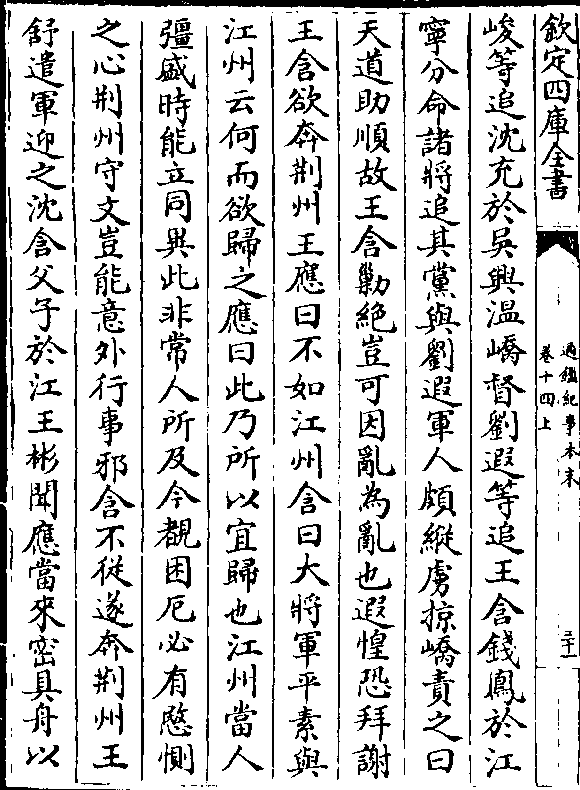 欽定四庫全書
通鑑紀事本末
卷十四上
二十一
峻等追沈充於吳興溫嶠督劉遐等追王含錢鳳於江
寧分命諸將追其黨與劉遐軍人頗縱虜掠嶠責之曰
天道助順故王含勦絶豈可因亂為亂也遐惶恐拜謝
王含欲奔荆州王應曰不如江州含曰大將軍平素與
江州云何而欲歸之應曰此乃所以宜歸也江州當人
彊盛時能立同異此非常人所及今覩困厄必有愍惻
之心荆州守文豈能意外行事邪含不從遂奔荆州王
舒遣軍迎之沈含父子於江王彬聞應當來密具舟以